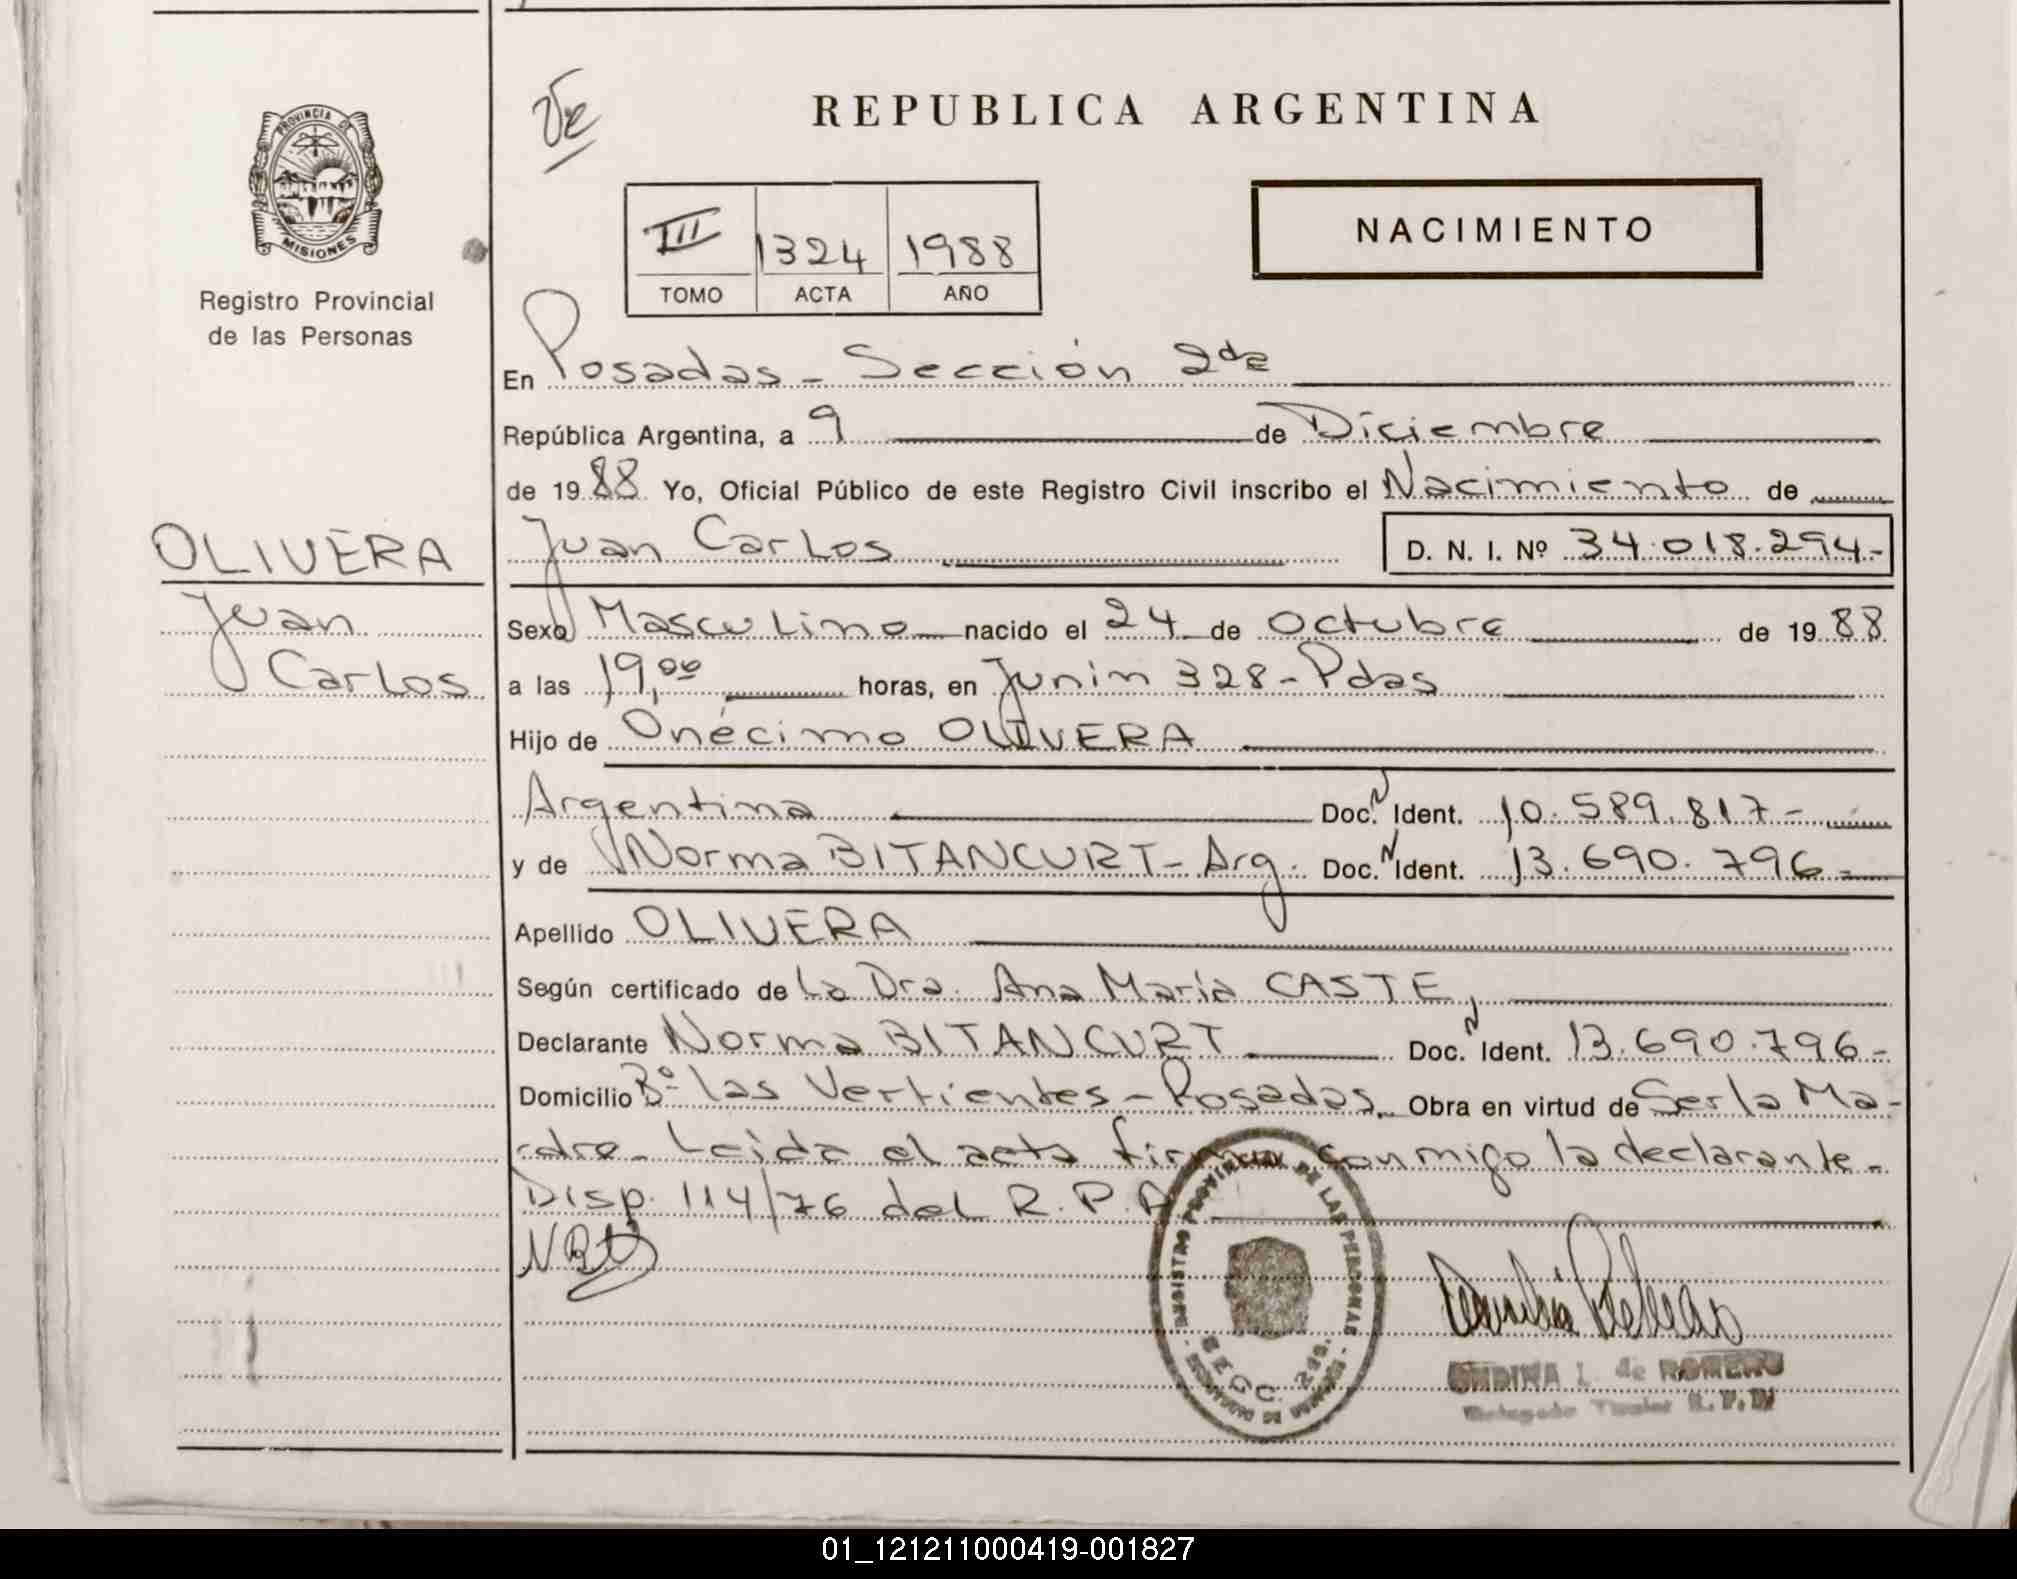 PROVINCIA DE
MISIONES
Registro Provincial
de las Personas
OLIVERA
Juan
Carlos
REPUBLICA ARGENTINA
III 1324 1988
TOMO ACTA AÑO
NACIMIENTO
En Posadas - Sección 2da
República Argentina, a 9 de Diciembre
de 1988 Yo, Oficial Público de este Registro Civil inscribo el Nacimiento de
Juan Carlos D. N. I. Nº 34.018.294-
Sexo Masculino nacido el 24 de Octubre de 1988
a las 19,00 horas, en Junín 328-Pdas
Hijo de Onécimo OLIVERA
Argentina Doc. Ident. 10.589.817-
y de Norma BITANCURT - Arg. Doc. Ident. 13.690.796-
Apellido OLIVERA
Según certificado de La Dra. Ana María CASTE,
Declarante Norma BITANCURT Doc. Ident. 13.690.796-
Domicilio Bº las Vertientes - Posadas, Obra en virtud de Ser la Ma-
dre - Leida el acta firma conmigo la declarante -
Disp. 114/76 del R. P. P.
REGISTRO PROVINCIAL DE LAS PERSONAS
de ROMERO
01_121211000419-001827